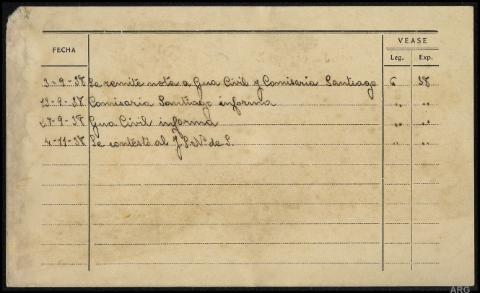 VEASE
FECHA Leg. Exp.
3-9-38 Se remite nota a Gua Civil y Comisaria Santiago 6 38
13-9-38 Comisaria Santiago informa " "
27-9-38 Gua Civil informa " "
4-11-38 Se contestó al J. de S. " "
ARG